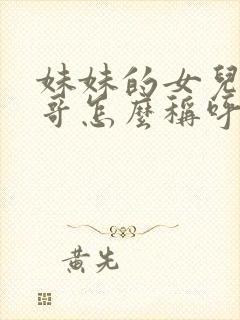 妹妹的女兒
哥怎麼稱呼
黃先